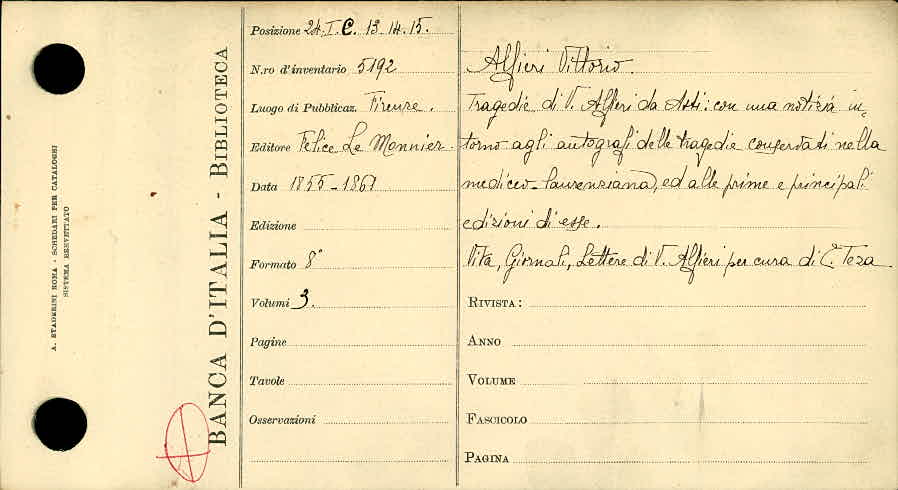 A. STADERINI ROMA - SCHEDARI PER CATALOGHI
SISTEMA BREVETTATO
BANCA D'ITALIA - BIBLIOTECA
Posizione 24. I. C. 13. 14. 15.
N.ro d'inventario 5192
Luogo di Pubblicaz. Firenze.
Editore Felice Le Monnier.
Data 1855-1861
Edizione
Formato 8°
Volumi 3.
Pagine
Tavole
Osservazioni
Alfieri Vittorio.
Tragedie di V. Alfieri da Asti: con una notizia in=
torno agli autografi delle tragedie conservati nella
mediceo-laurenziana, ed alle prime e principali
edizioni di esse.
Vita, Giornali, Lettere di V. Alfieri per cura di E. Teza
RIVISTA:
ANNO
VOLUME
FASCICOLO
PAGINA